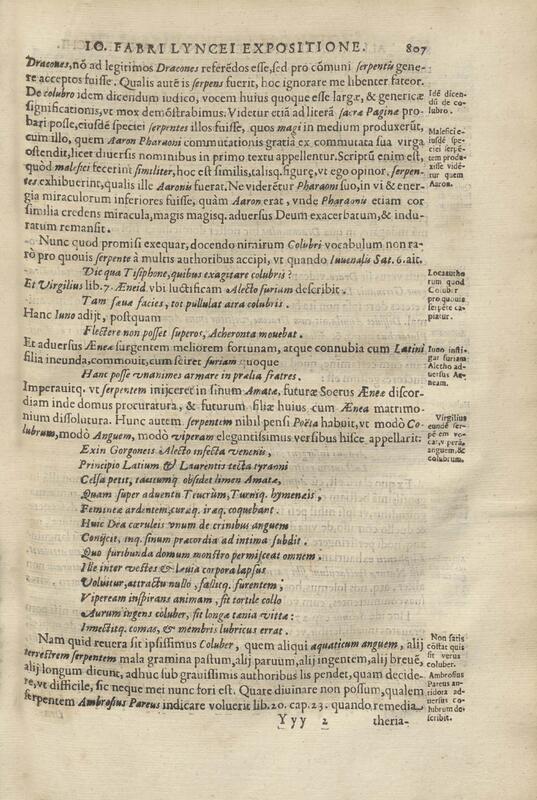 IO. FABRI LYNCEI EXPOSITIONE. 807
Dracones, nō ad legitimos Dracones referēdos esse, sed pro cōmuni serpentis gene-
re acceptos fuisse. Qualis autē is serpens fuerit, hoc ignorare me libenter fateor.
De colubro idem dicendum iudico, vocem huius quoque esse largæ, & genericæ
significationis, vt mox demōstrabimus. Videtur etiā ad literā sacræ Paginæ pro-
bari posse, eiusdē speciei serpentes illos fuisse, quos magi in medium produxerūt,
cum illo, quem Aaron Pharaoni commutationis gratia ex commutata sua virga
ostendit, licet diuersis nominibus in primo textu appellentur. Scriptū enim est,
quòd malefici fecerint similiter, hoc est similis, talisq. figuræ, vt ego opinor, serpen-
tes exhibuerint, qualis ille Aaronis fuerat. Ne viderētur Pharaoni suo, in vi & ener-
gia miraculorum inferiores fuisse, quàm Aaron erat, vnde Pharaonis etiam cor
similia credens miracula, magis magisq. aduersus Deum exacerbatum, & indu-
ratum remansit.
Nunc quod promisi exequar, docendo nimirum Colubri vocabulum non ra-
rò pro quouis serpente à multis authoribus accipi, vt quando Iuuenalis Sat. 6. ait.
Dic qua Tisiphone, quibus exagitare colubris?
Et Virgilius lib. 7. Æneid. vbi luctificam Alecto furiam describit.
Tam sæuæ facies, tot pullulat atra colubris.
Hanc Iuno adijt, postquam
Flectere non posset superos, Acheronta mouebat.
Et aduersus Æneæ surgentem meliorem fortunam, atque connubia cum Latini
filia ineunda, commouit, cum sciret furiam quoque
Hanc posse vnanimes armare in prælia fratres.
Imperauitq. vt serpentem inijceret in sinum Amatæ, futuræ Socrus Æneæ discor-
diam inde domus procuratura, & futurum filiæ huius cum Ænea matrimo-
nium dissolutura. Hunc autem serpentem nihil pensi Poëta habuit, vt modò Co-
lubrum, modò Anguem, modò viperam elegantissimus versibus hisce appellarit:
Exin Gorgoneis Alecto infecta venenis,
Principio Latium & Laurentis tecta tyranni
Celsa petit, tacitumq. obsidet limen Amatæ,
Quam super aduentu Teucrûm, Turniq. hymenæis,
Femineæ ardentem, curæq. iræq. coquebant.
Huic Dea cœruleis vnum de crinibus anguem
Conijcit, inq. sinum præcordia ad intima subdit.
Quo furibunda domum monstro permisceat omnem.
Ille inter vestes & læuia corpora lapsus
Voluitur, attractu nullo, fallitq. furentem;
Vipeream inspirans animam, fit tortile collo
Aurum ingens coluber, fit longa tænia vittæ:
Innectitq. comas, & membris lubricus errat.
Nam quid reuera sit ipsissimus Coluber, quem aliqui aquaticum anguem, alij
terrestrem serpentem mala gramina pastum, alij paruum, alij ingentem, alij breuē,
alij longum dicunt, adhuc sub grauissimis authoribus lis pendet, quam decide-
re, vt difficile, sic neque mei nunc fori est. Quare diuinare non possum, qualem
serpentem Ambrosius Pareus indicare voluerit lib. 20. cap. 23. quando remedia
Yyy 2 theria-
Idē dicen-
dū de co-
lubro.
Malefici e-
iusdē spe-
ciei serpē-
tem produ-
xisse vidē-
tur quem
Aaron.
Loca autho
rum quod
Coluber
pro quouis
serpēte ca-
piatur.
Iuno insti-
gat furiam
Alectho ad-
uersus Æ-
neam.
Virgilius
eundē ser-
pē em vo-
cat, vperā,
anguem, &
colubrum.
Non satis
cōstat quis
sit verus
coluber.
Ambrosius
Pareus an-
tidota ad-
uersus co-
lubrum de-
scribit.